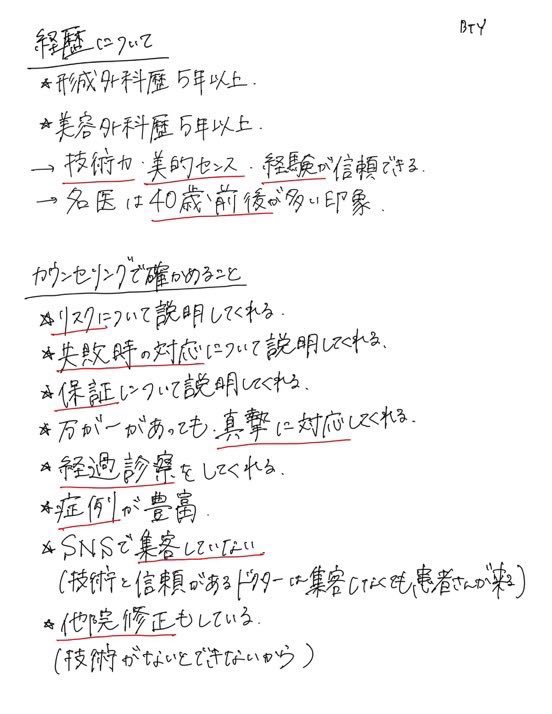 BTY
経歴について
☆形成外科歴5年以上.
☆美容外科歴5年以上.
→技術力・美的センス・経験が信頼できる.
→名医は40歳前後が多い印象.
カウンセリングで確かめること
☆リスクについて説明してくれる.
☆失敗時の対応について説明してくれる.
☆保証について説明してくれる.
☆万が一があっても、真摯に対応してくれる.
☆経過診察をしてくれる.
☆症例が豊富.
☆SNSで集客していない
(技術と信頼があるドクターは集客しなくても、患者さんが来る)
☆他院修正もしている.
(技術がないとできないから)